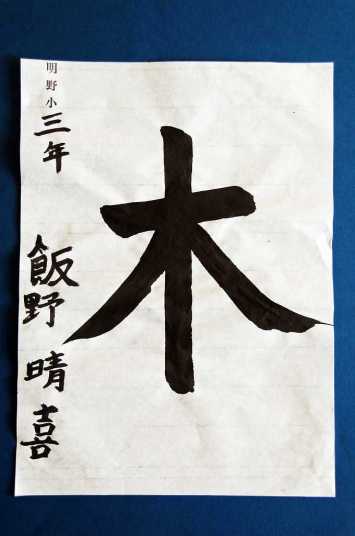 木
明野小
三年
飯野晴喜